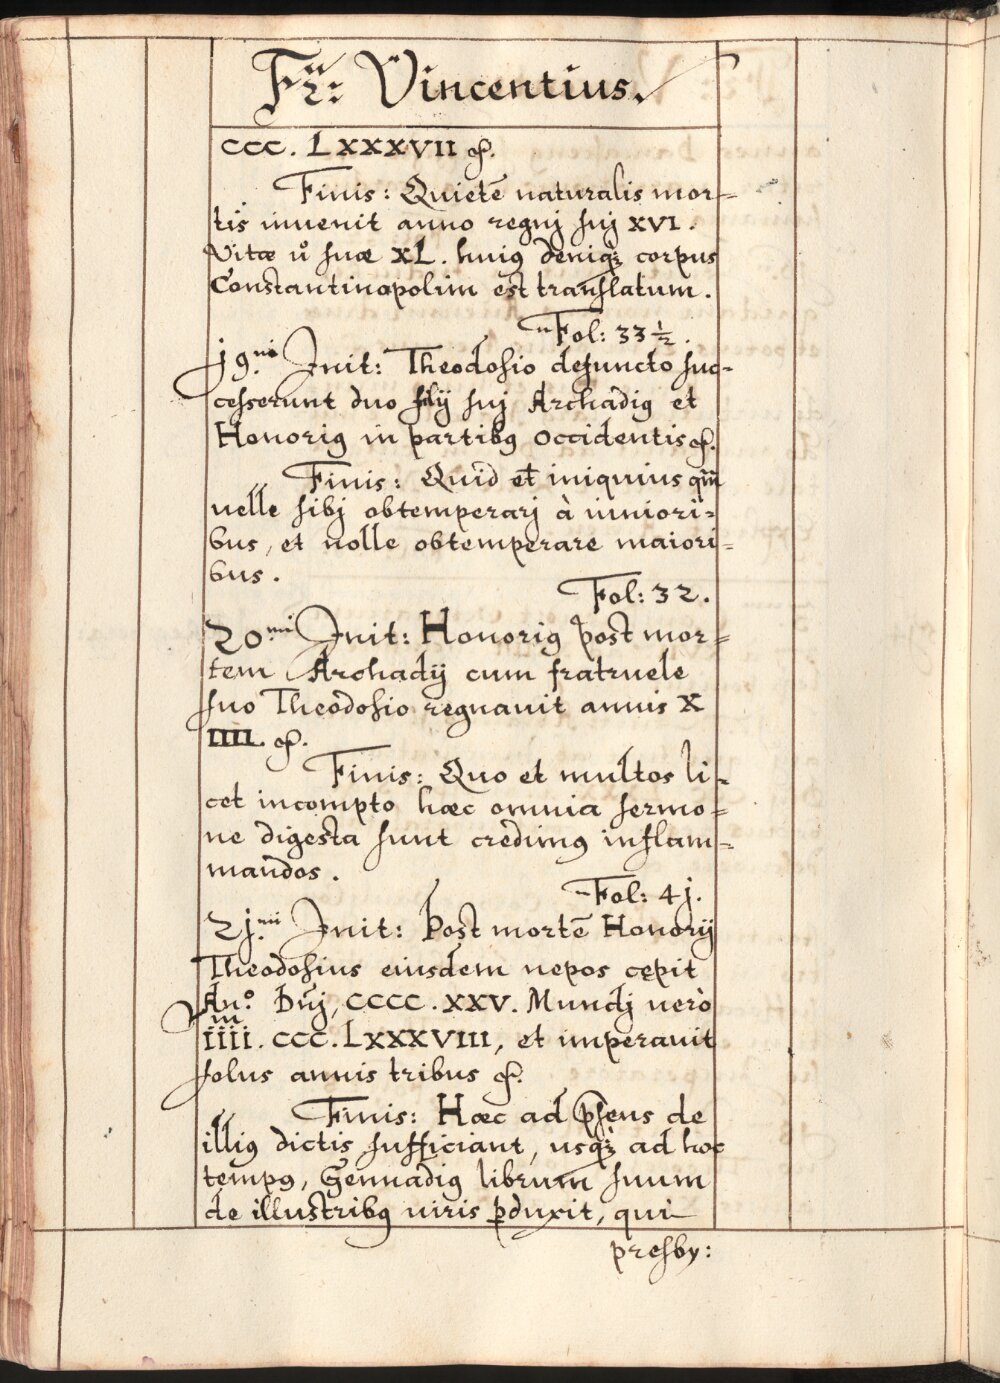 Fr: Vincentius.
CCC. LXXXVII &.
Finis: Quietē naturalis mor=
tis inuenit anno regnj suj XVI.
Vitæ ů suæ XL. huiꝰ deniqꝫ corpus
Constantinopolim est translatum.
Fol: 33½.
j9.ni Jnit: Theodosio defuncto suc=
cesserunt duo filij suj Archadiꝰ et
Honoriꝰ in partibꝰ occidentis &.
Finis: Quid eť iniquius qm̄
uelle sibj obtemperarj à iuniori=
bus, et nolle obtemperare maiori=
bus.
Fol: 32.
20.mi Jnit: Honoriꝰ post mor=
tem Archadij cum fratruele
suo Theodosio regnauit annis X
IIII. &.
Finis: Quo et multos li=
cet incompto hæc omnia sermo=
ne digesta sunt credimꝰ inflam=
mandos.
Fol: 4j.
2j.mi Jnit: Post mortē Honorij
Theodosius eiusdem nepos cępit
An.º Dn̄j, CCCC.XXV. Mundj uerò
m
iiii. CCC.LXXXVIII, et imperauit
solus annis tribus &.
Finis: Hæc ad p̄sens de
illiꝰ dictis sufficiant, usqꝫ̀ ad hoc
tempꝰ, Gennadiꝰ librum suum
de illustribꝰ uiris ꝑduxit, qui
presby: